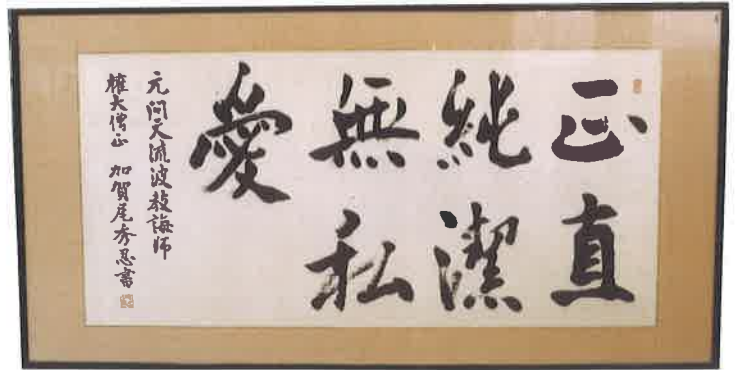 正直
純潔
無私
愛
元問天流波教誨師
権大僧正 加賀尾秀忍書